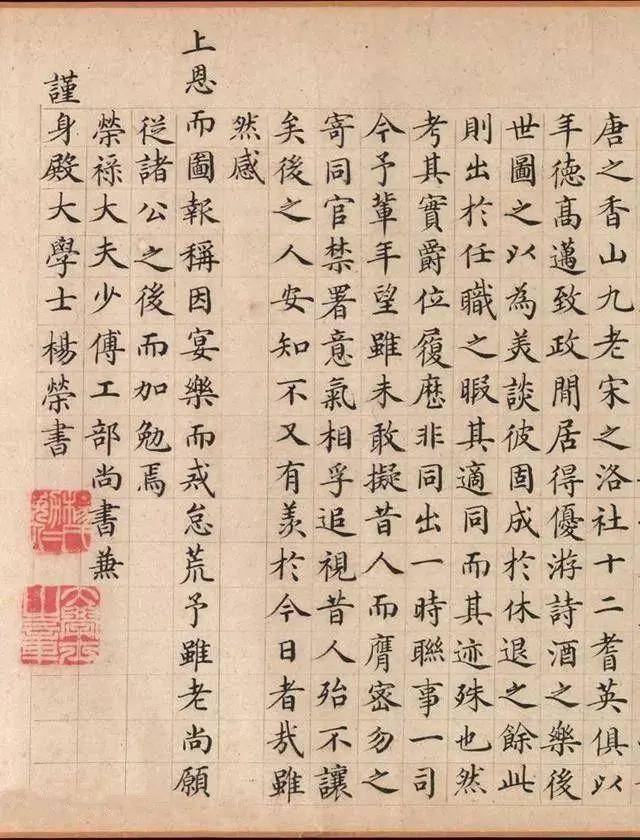 唐之香山九老宋之洛社十二耆英俱以
年德高邁致政閒居得優游詩酒之樂後
世圖之以為美談彼固成於休退之餘此
則出於任職之暇其適同而其迹殊也然
考其實爵位履歷非同出一時聯事一司
今予輩年望雖未敢擬昔人而膺密勿之
寄同官禁署意氣相孚追視昔人殆不讓
矣後之人安知不又有羨於今日者哉雖
然感
上恩而圖報稱因宴樂而戒怠荒予雖老尚願
從諸公之後而加勉焉
榮祿大夫少傅工部尚書兼
謹身殿大學士楊榮書